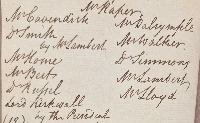 Mr Raper
Mr Cavendish
Mr Dalrymple
Dr Smith
by Mr Lambert
Mr Walker
Mr Rowe
Dr Simmons
Mr Best
Mr Lambert
Dr Russel
Mr Lloyd
Lord Kirkwall
by the President